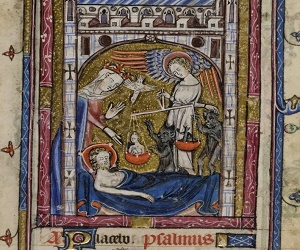 A Placebo psalmus